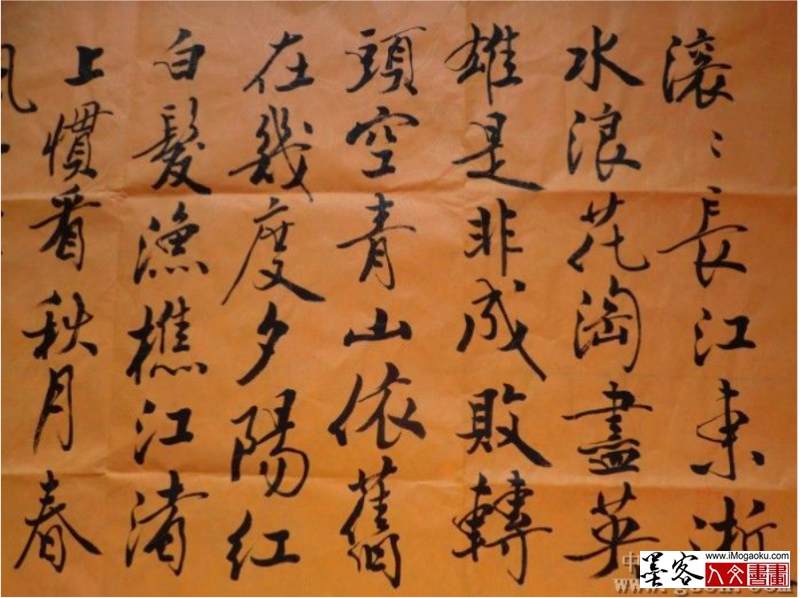 滚〻長江東逝
水浪花淘盡英
雄是非成敗轉
頭空青山依舊
在幾度夕陽紅
白髮漁樵江渚
上慣看秋月春
風
墨客
www.iMogaoku.com
人文書畫